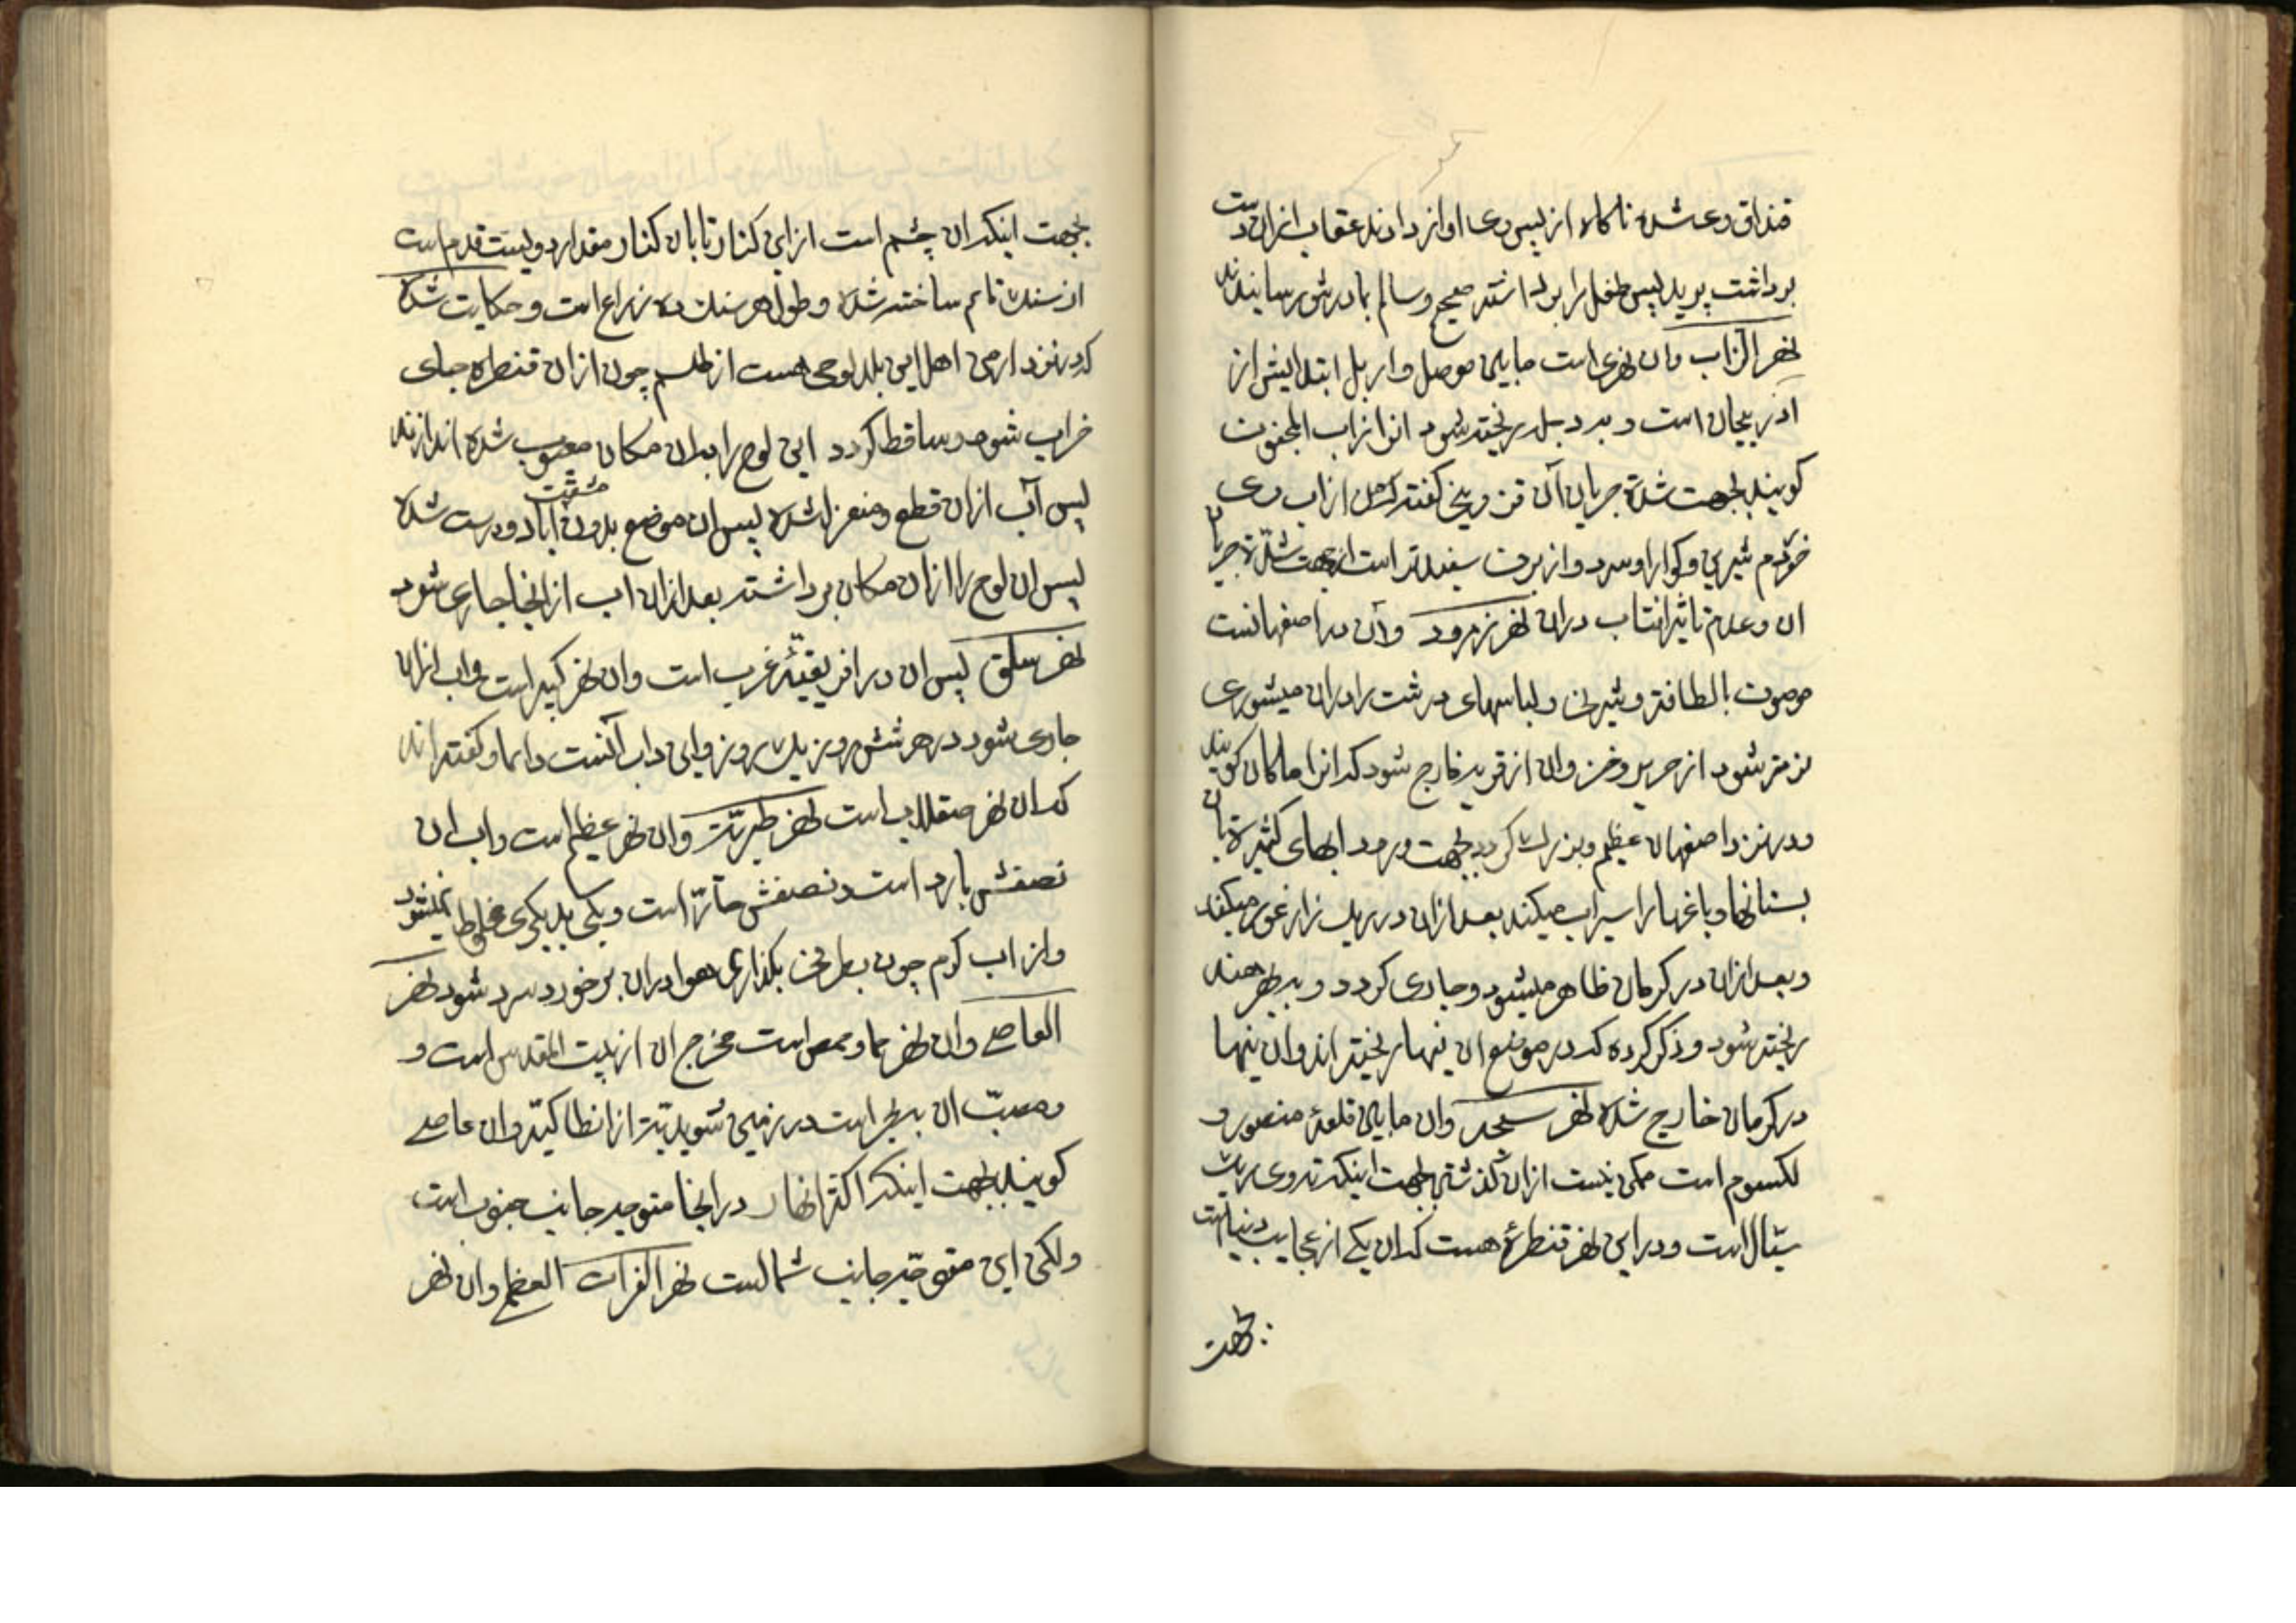 قنداق وی شده ناکاه از پس وی اواز دادند عقاب از ان دست
برداشت پرید پس طفل را برداشته صحیح و سالم بمادرش رسانیدند
نهر الزاب وان نهری است مابین موصل و اربل ابتدایش از
ادربیجان است و بدجله ریخته شود انرا زاب المجنون
کویند بجهت شدة جریان آن قزوینی کفته که من از اب وی
خوردم شیرین و کوارا و سرد و از برف سفیدتر است از جهت شدّة جریان
ان و عدم تاثیر افتاب دران نهر زنرود وآن در اصفهانست
موصوف بالطافة و شیرینی و لباسهای درشت را دران میشوری
نرمتر شود از حریر و خز وان از قریه خارج شود که انرا ماکان کویند
و در نزد اصفهان عظیم و بزرک کردد بجهت ورود ابهای کثیرة بان
بستانها و باغها را سیراب میکند بعد از ان در ریک زار غور میکند
و بعد از ان در کرمان ظاهر میشود و جاری کردد و ببحر هند
ریخته شود و ذکر کرده که در موضع ان نیها ریخته اند وان نیها
در کرمان خارج شده نهر سنجه وان مابین قلعهٔ منصور و
لکسوم است ممکن نیست از ان کذشتن بجهت اینکه ته وی ریک
سیّال است و در این نهر قنطرهٔ هست که ان یکی از عجایب دنیا است
بجهت
بجهت اینکه ان چشم است از این کنار تا بان کنار مقدار دویست قدم است
از سنک تمام ساخته شده و طول هر سنک ده زراع است و حکایت شده
که در نزد ارمن اهل این بلد لوحی هست از طلسم چون از ان قنطره جای
خراب شود و ساقط کردد این لوح را بدان مکان معیوب شده اندازند
پس آب از ان قطع و منعزل شده پس ان موضع بدون مشقت آباد و درست شده
پس ان لوح را از ان مکان برداشته بعد از ان اب از انجا جاری شود
نهر سلق پس ان در افریقیّهٔ غرب است وان نهر کبیر است و اب از ان
جاری شود در هر شش روز یک روز و این داب آنست دائما و کفته اند
که ان نهر صقلاب است نهر طبریّة وان نهر عظیم است و اب ان
نصفش بارد است و نصفش حارّ است و یکی بدیکری مخلوط نمیشود
و از اب کرم چون بظرفی بکذاری هوا دران بر خورد سرد شود نهر
العاصی وان نهر حما و حمص است مخرج ان از بیت المقدس است و
مصبّ ان ببحر است در زمین سویدیّة از انطاکیّه وان عاصی
کویند بجهت اینکه اکثر انهار در انجا متوجه جانب جنوب است
ولکن این متوجّه جانب شمالست نهر الفرات العظم وان نهر